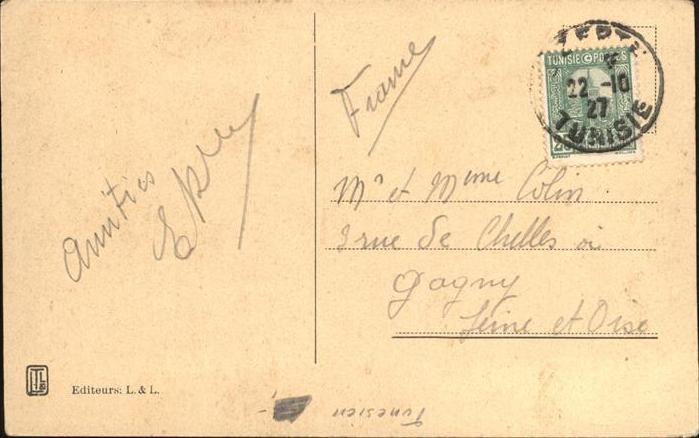 Amitiés
France
TUNISIE POSTES
22 -10
27
TUNISIE
Mr et Mme Colin
3 rue de Chelles
Gagny
Seine et Oise
Editeurs: L. & L.
Tunesien